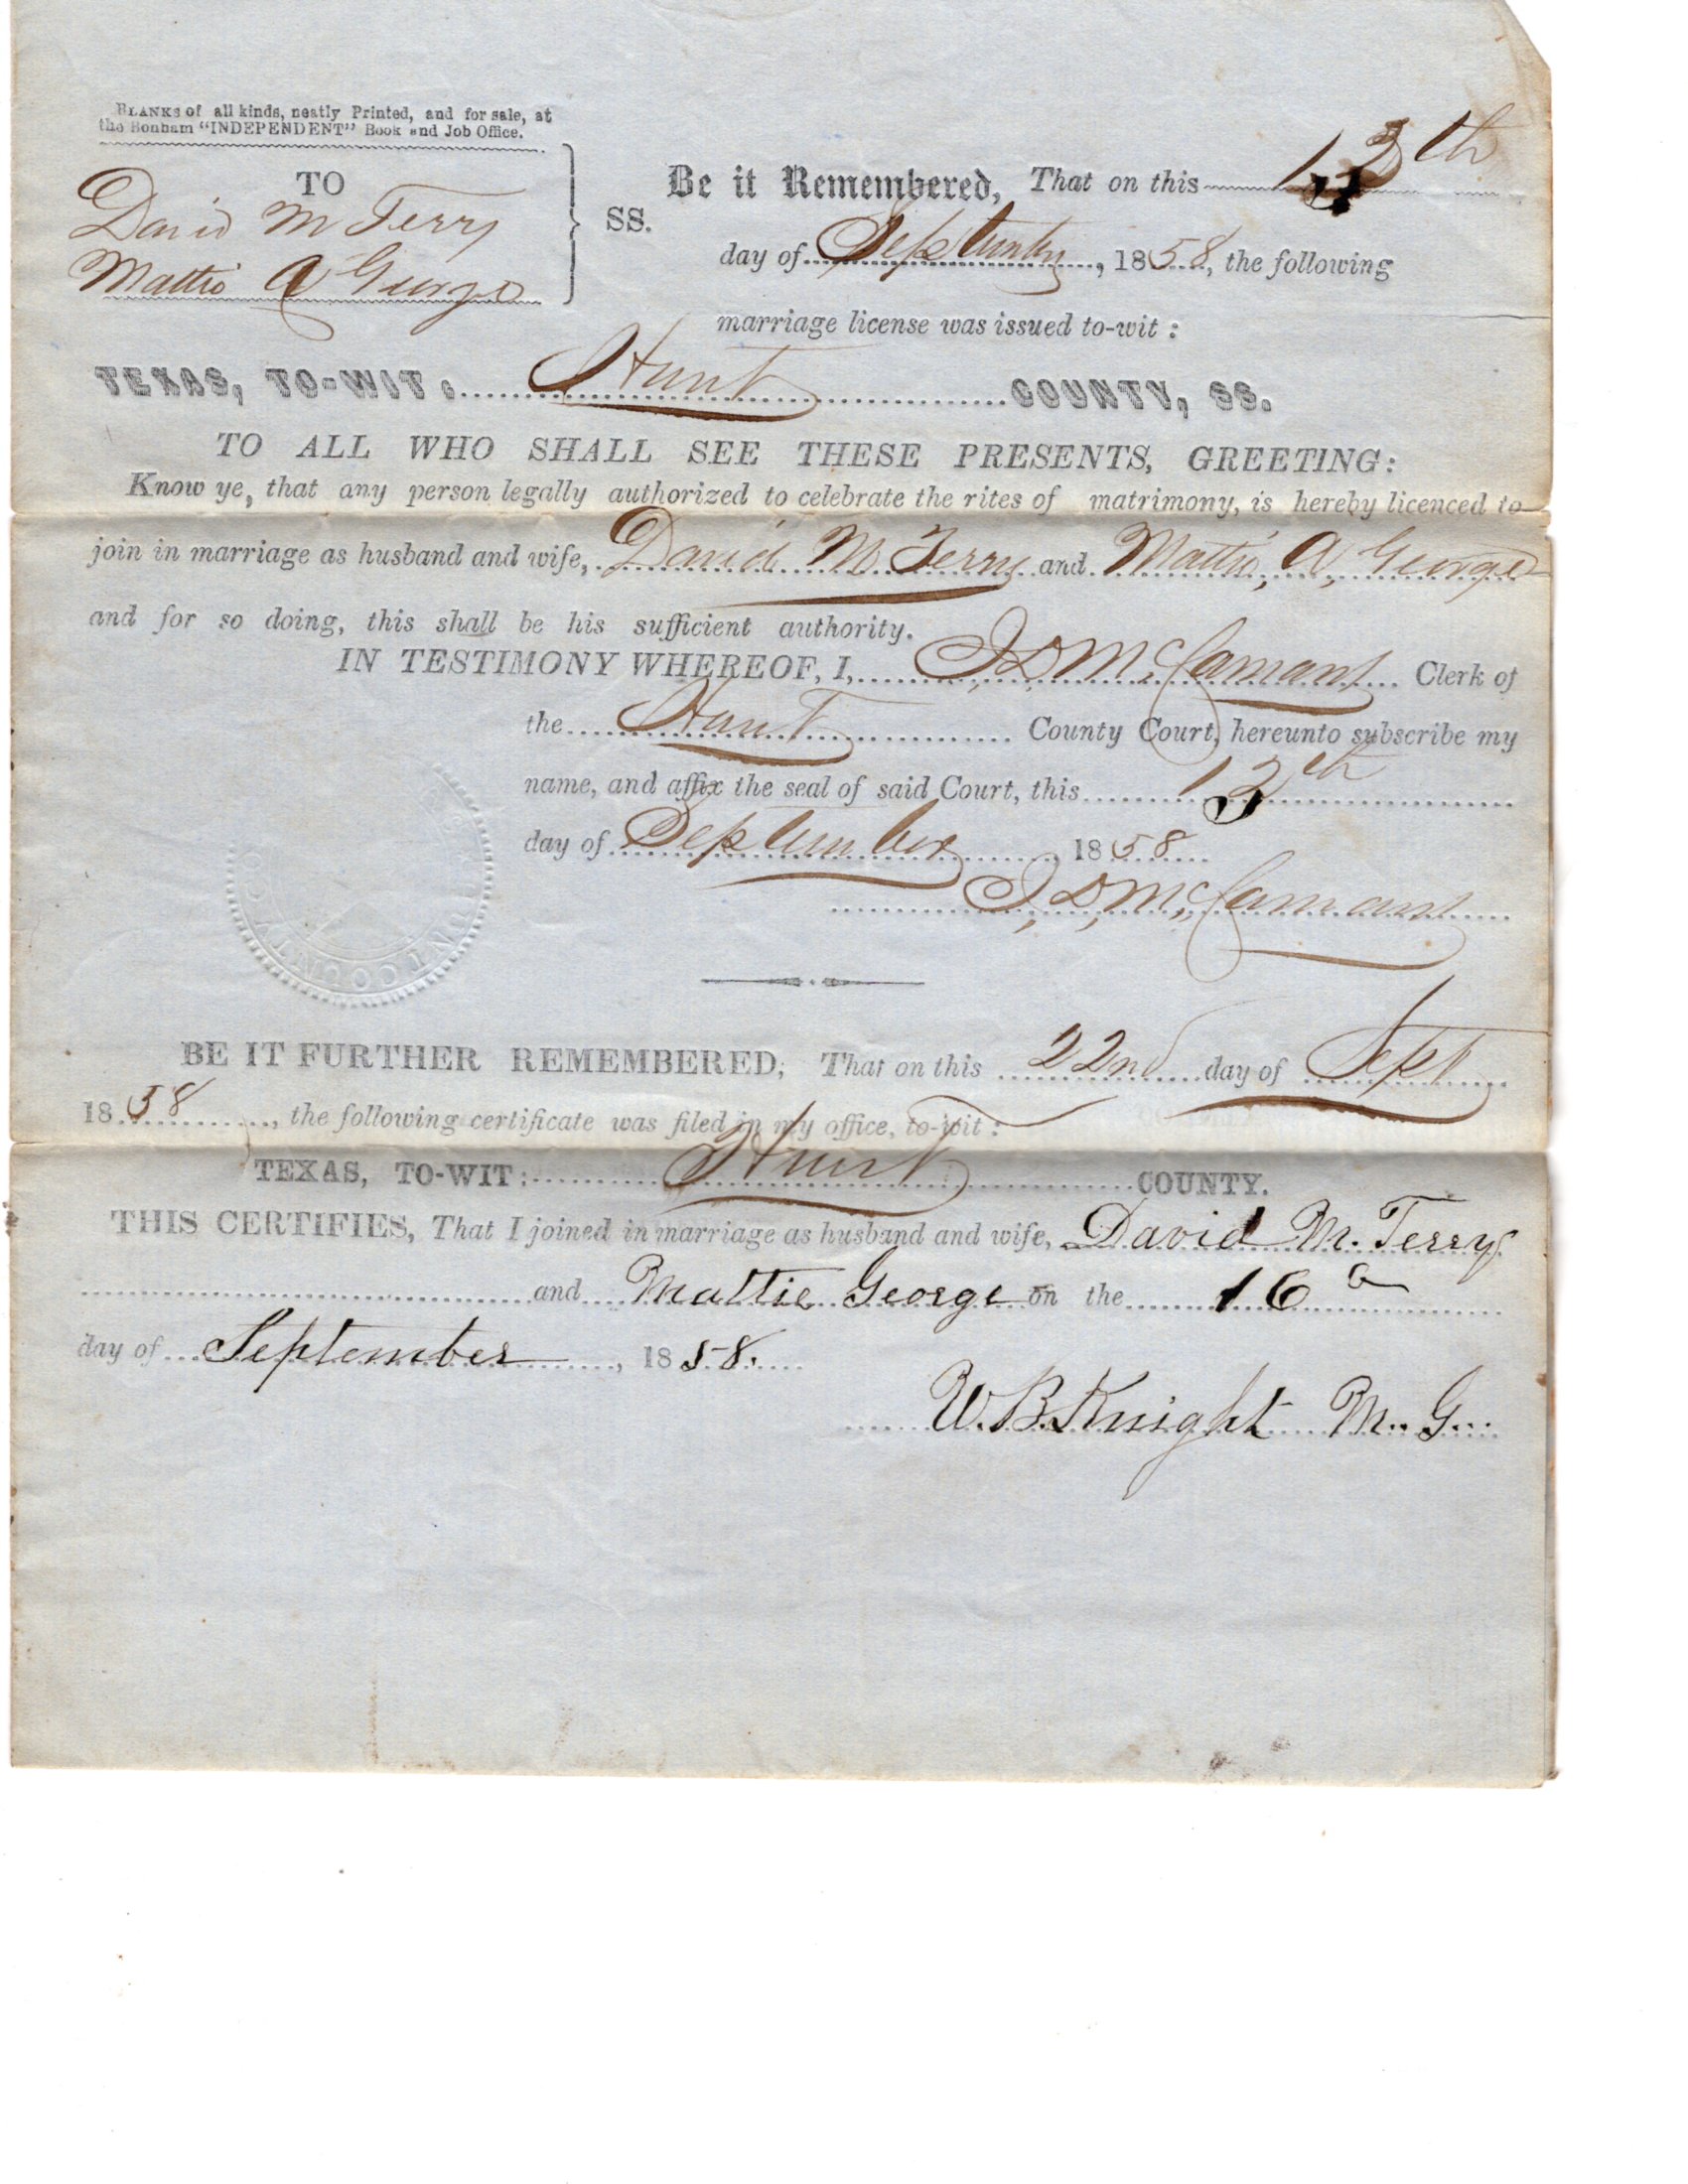 BLANKS of all kinds, neatly Printed, and for sale, at
the Bonham "INDEPENDENT" Book and Job Office.
TO
David M Terry
Mattie A George
SS.
Be it Remembered, That on this 13th
day of September, 1858, the following
marriage license was issued to-wit:
TEXAS, TO-WIT: Hunt COUNTY, SS.
TO ALL WHO SHALL SEE THESE PRESENTS, GREETING:
Know ye, that any person legally authorized to celebrate the rites of matrimony, is hereby licenced to
join in marriage as husband and wife, David M Terry and Mattie, A, George
and for so doing, this shall be his sufficient authority.
IN TESTIMONY WHEREOF, I, McCamant Clerk of
the Hunt County Court, hereunto subscribe my
name, and affix the seal of said Court, this 13th
day of September 1858
McCamant
BE IT FURTHER REMEMBERED, That on this 22nd day of Sept
1858, the following certificate was filed in my office, to-wit:
TEXAS, TO-WIT: Hunt COUNTY.
THIS CERTIFIES, That I joined in marriage as husband and wife, David M. Terry
and Mattie George on the 16
day of September, 1858.
W. B. Knight M. G.